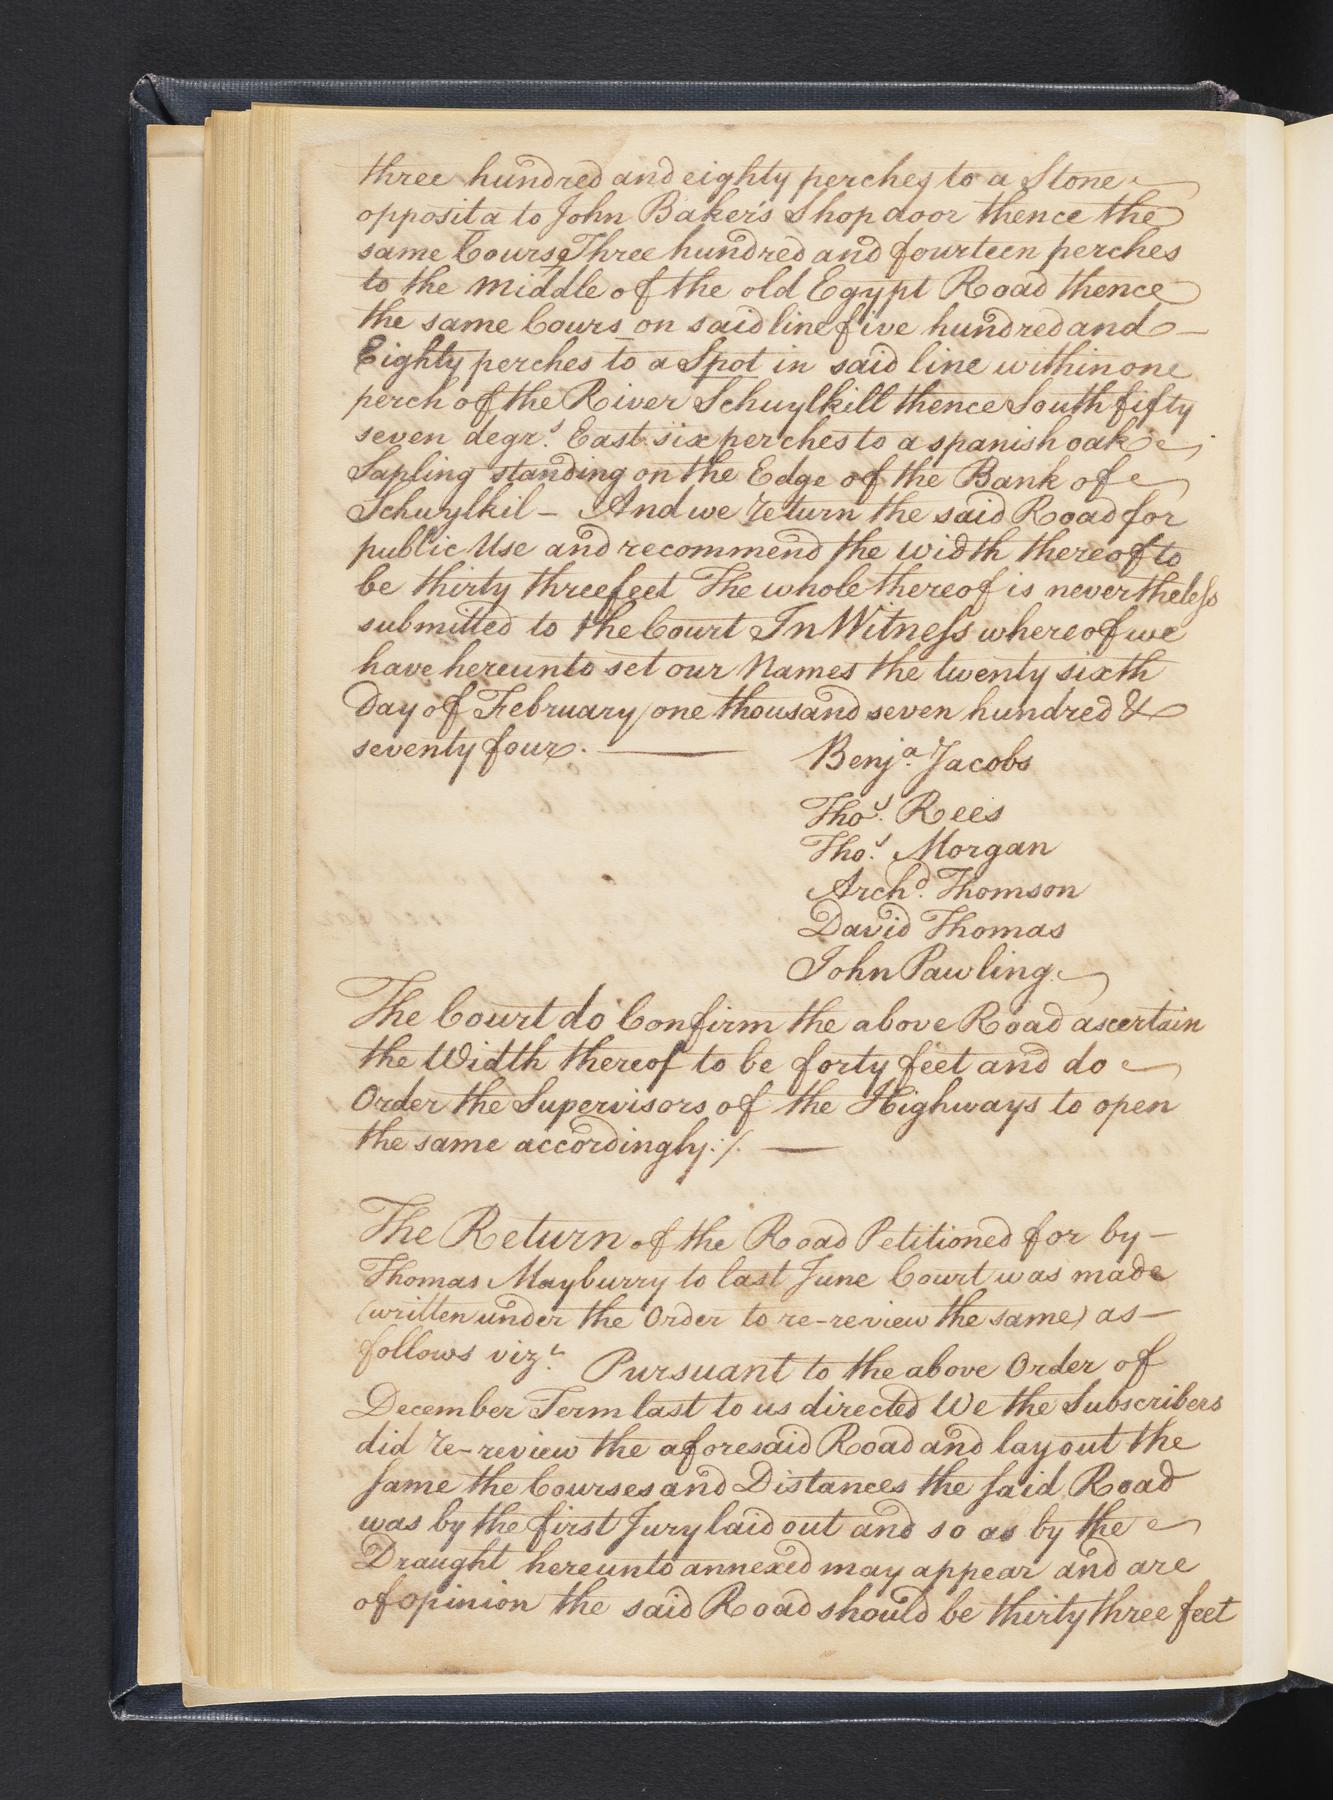 three hundred and eighty perches to a Stone
opposita to John Baker's Shop door thence the
same Course Three hundred and fourteen perches
to the middle of the old Egypt Road thence
the same Cours on said line five hundred and
Eighty perches to a Spot in said line within one
perch of the River Schuylkill thence South fifty
seven degr.s East six perches to a spanish oak
Sapling standing on the Edge of the Bank of
Schuylkil – And we return the said Road for
public Use and recommend the width thereof to
be thirty three feet The whole thereof is nevertheless
submitted to the Court In Witness whereof we
have hereunto set our Names the twenty sixth
Day of February one thousand seven hundred &
seventy four.
Benj.a Jacobs
Tho.s Rees
Tho.s Morgan
Arch.d Thomson
David Thomas
John Pawling
The Court do Confirm the above Road ascertain
the Width thereof to be forty feet and do
Order the Supervisors of the Highways to open
the same accordingly :/.
The Return of the Road Petitioned for by –
Thomas Mayburry to last June Court was made
(written under the Order to re-review the same) as –
follows viz.t Pursuant to the above Order of
December Term last to us directed We the Subscribers
did re-review the aforesaid Road and lay out the
same the Courses and Distances the said Road
was by the first Jury laid out and so as by the
Draught hereunto annexed may appear and are
of opinion the said Road should be thirty three feet